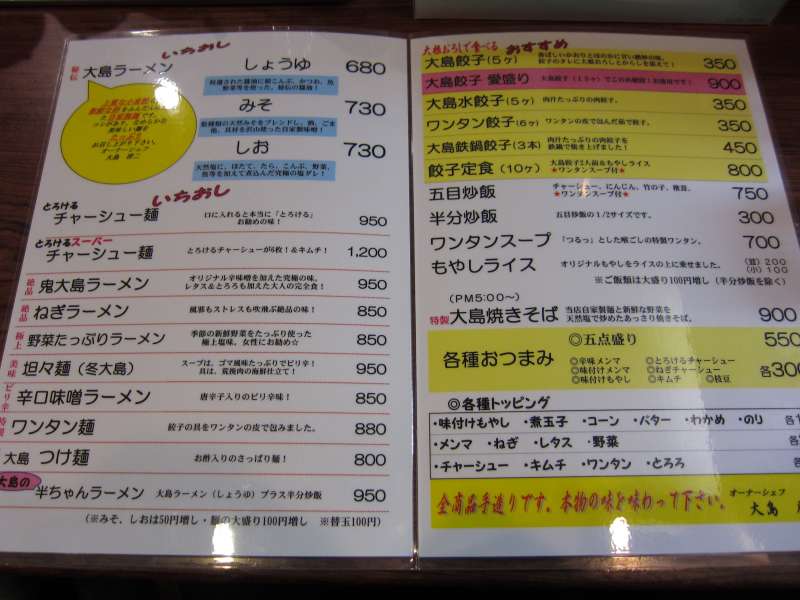 いちおし
秘伝 大島ラーメン しょうゆ 680
みそ 730
しお 730
オーナーシェフ
いちおし
とろける
チャーシュー麺 口に入れると本当に「とろける」
お勧めの味！ 950
とろけるスーパー
チャーシュー麺 とろけるチャーシューが6枚！＆キムチ！ 1,200
絶品 鬼大島ラーメン オリジナル辛味噌を加えた究極の味。
レタス＆とろろも加えた大人の完全食！ 950
絶品 ねぎラーメン 風邪もストレスも吹飛ぶ絶品の味！ 850
極上 野菜たっぷりラーメン 季節の新鮮野菜をたっぷり使った
極上塩味、女性にお勧め☆ 850
美味 坦々麺（冬大島） スープは、ゴマ風味たっぷりでピリ辛！
具は、荒挽肉の海鮮仕立て！ 850
ピリ辛 辛口味噌ラーメン 唐辛子入りのピリ辛味！ 850
特製 ワンタン麺 餃子の具をワンタンの皮で包みました。 880
大島 つけ麺 お酢入りのさっぱり麺！ 800
大島の 半ちゃんラーメン 大島ラーメン（しょうゆ）プラス半分炒飯 950
（※みそ、しおは50円増し・麺の大盛り100円増し ※替玉100円）
大根おろしで食べる おすすめ
大島餃子（5ヶ） 350
大島餃子 愛盛り 900
大島水餃子（5ヶ） 肉汁たっぷりの肉餃子。 350
ワンタン餃子（6ヶ） ワンタンの皮で包んだ茹で餃子。 350
大島鉄鍋餃子（3本） 肉汁たっぷりの肉餃子を
鉄鍋で焼き上げました！ 450
餃子定食（10ヶ） 大島餃子2人前＆もやしライス
★ワンタンスープ付★ 800
五目炒飯 チャーシュー、にんじん、竹の子、椎茸、
★ワンタンスープ付★ 750
半分炒飯 五目炒飯の1/2サイズです。 300
ワンタンスープ 「つるっ」とした喉ごしの特製ワンタン。 700
もやしライス オリジナルもやしをライスの上に乗せました。 （並）200
（小）100
※ご飯類は大盛り100円増し（半分炒飯を除く）
（PM5:00～）
特製 大島焼きそば 当店自家製麺と新鮮な野菜を
天然塩で炒めたあっさり焼きそば。 900
◎五点盛り 550
各種おつまみ 各300
◎辛味メンマ ◎とろけるチャーシュー
◎味付けメンマ ◎ねぎチャーシュー
◎味付けもやし ◎キムチ ◎枝豆
◎各種トッピング
・味付けもやし ・煮玉子 ・コーン ・バター ・わかめ ・のり 各1
・メンマ ・ねぎ ・レタス ・野菜
・チャーシュー ・キムチ ・ワンタン ・とろろ
全商品手造りです。本物の味を味わって下さい。 オーナーシェフ
大島